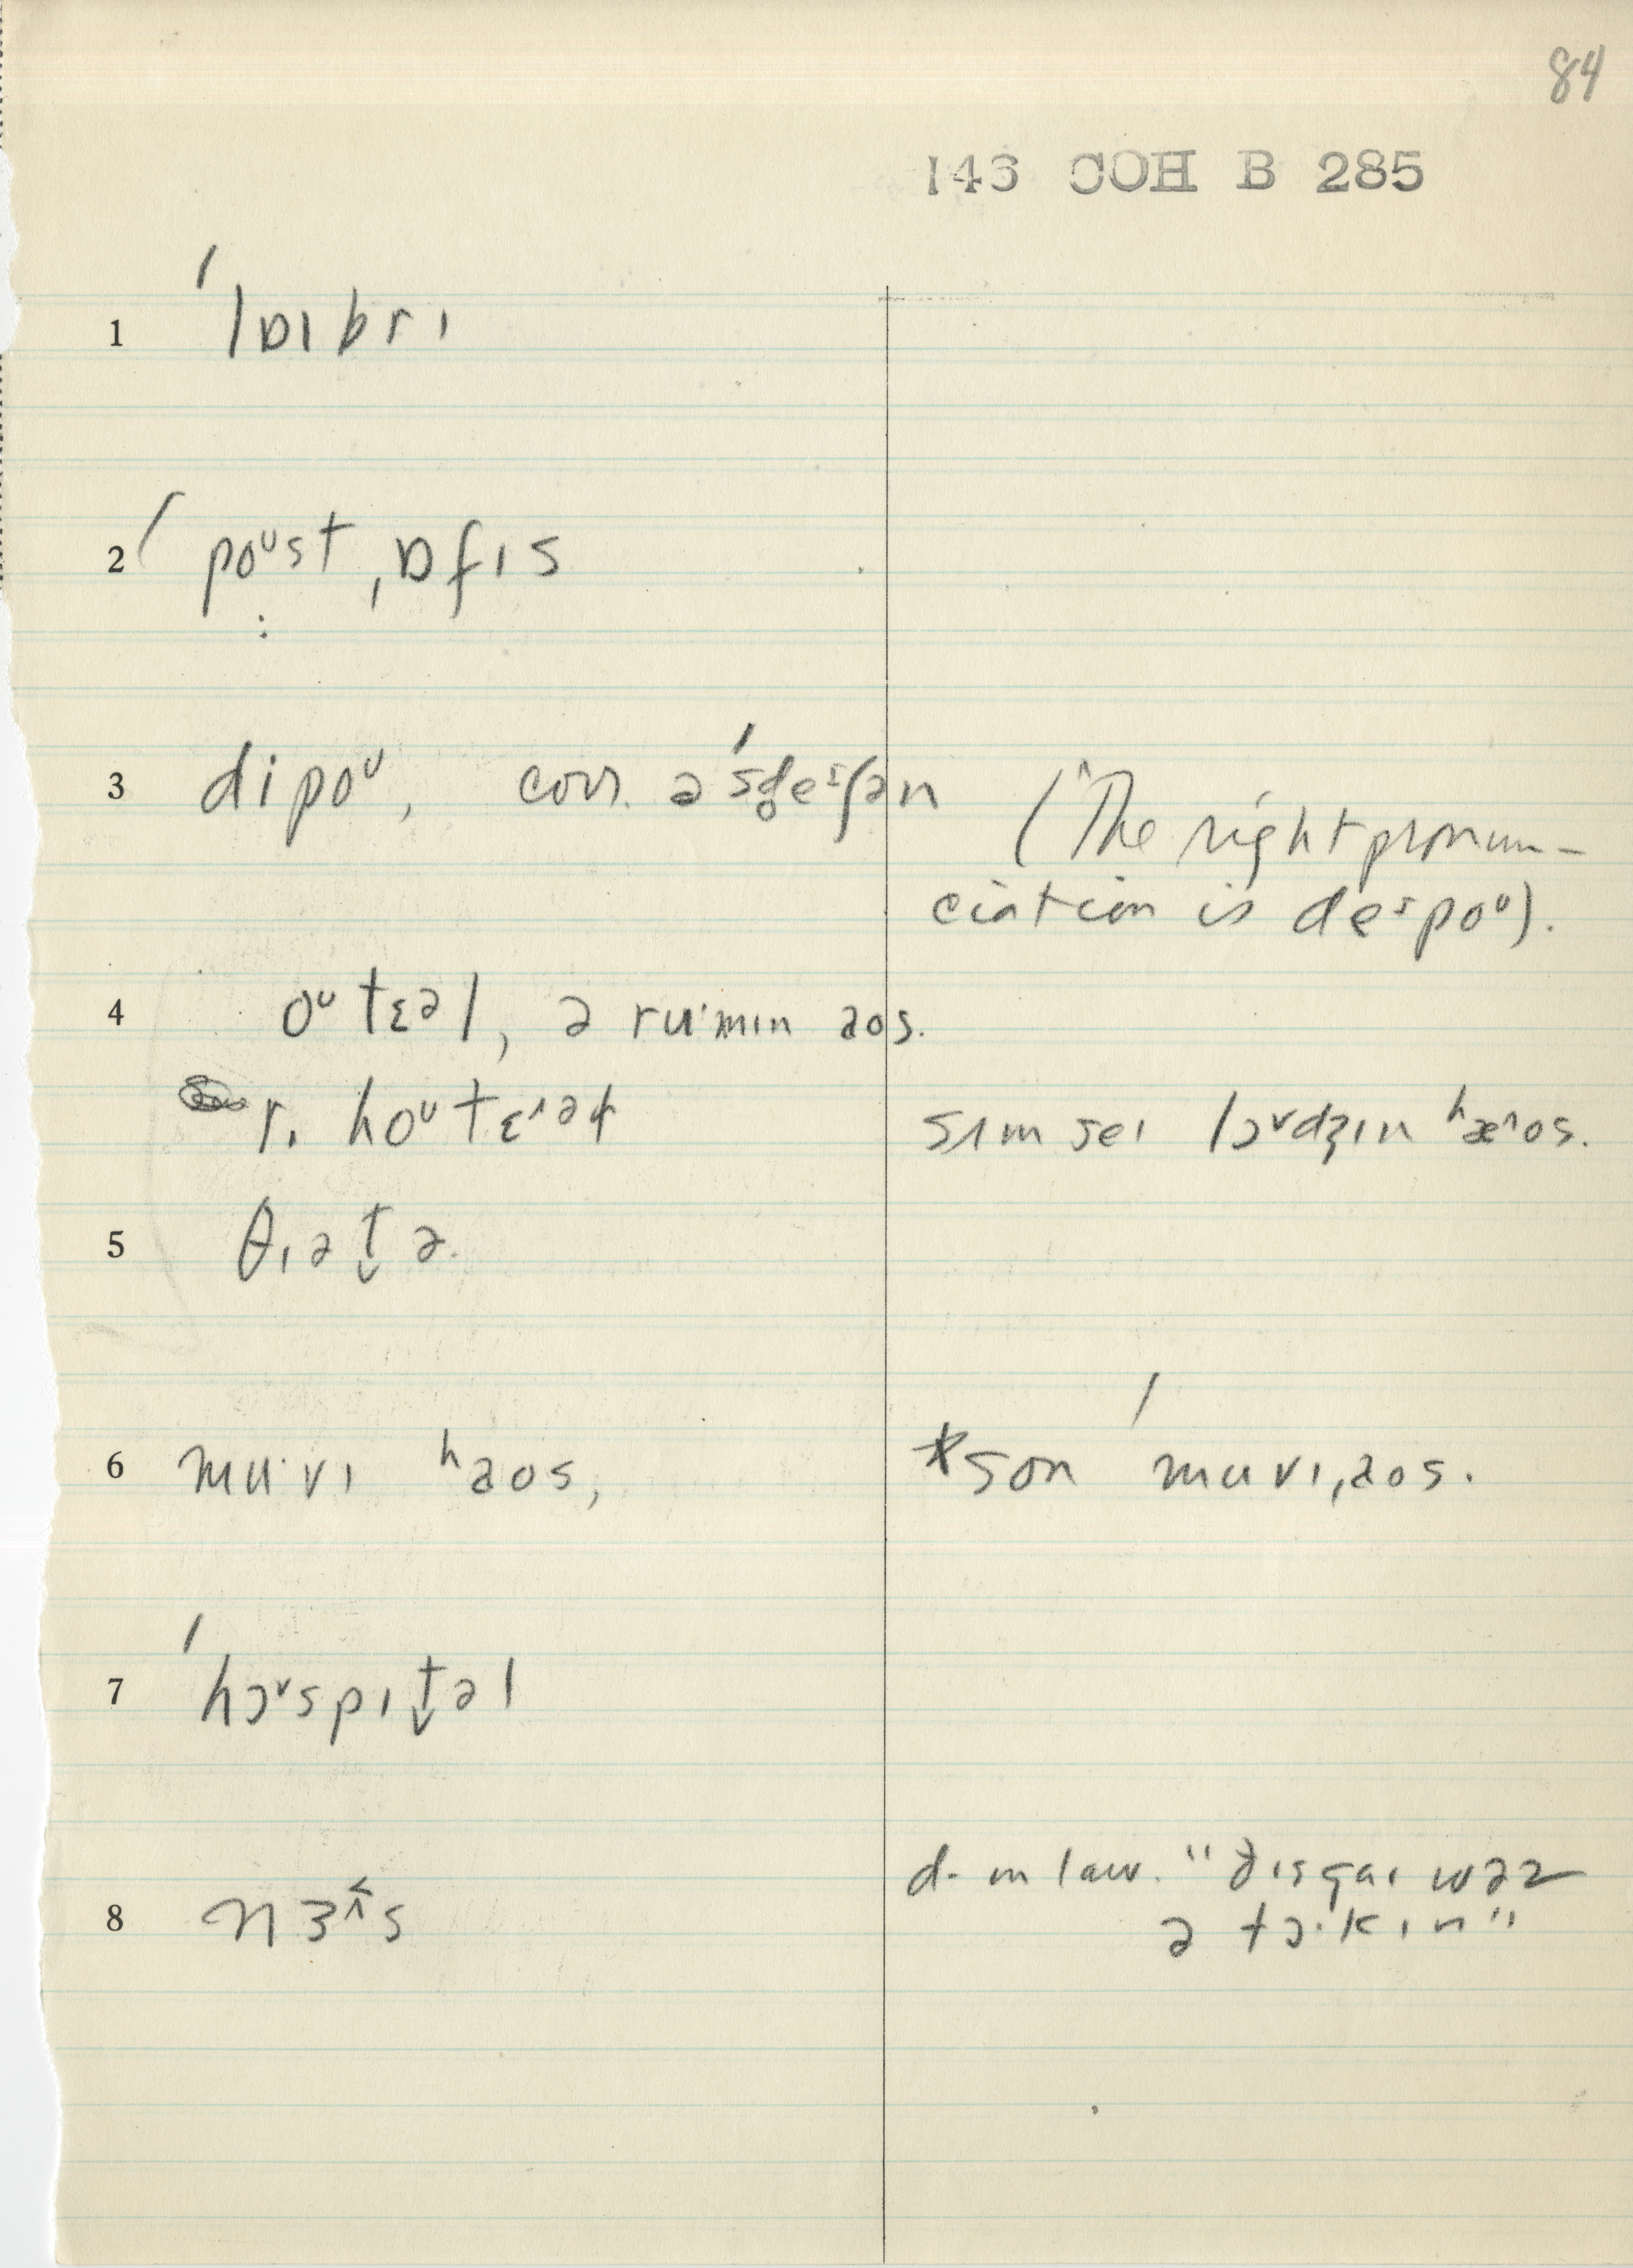 84
146 COH B 285
1 ˈlɒɪbrɪ
2 ˈpoᶷst ˌɒfɪs
3 dipoᶷ, corr. ə ˈsd̥eᶦʃən
(The right pronun-
ciation is deᶦpoᶷ).
4 oᶷtɛəl, ə ru·mɪn aos.
r. hoᶷtɛ^əɫ sɪm seɪ lɔᵛdʒɪn ʰæ^os.
5 θɪət̬ə.
6 mu·vɪ ʰaos, *son ˈmuvɪˌaos.
7 ˈhɔᵛspɪt̬əl
8 nɜs d- in law. "ðɪs gaɪ wəz
ə tɔ·kɪn"